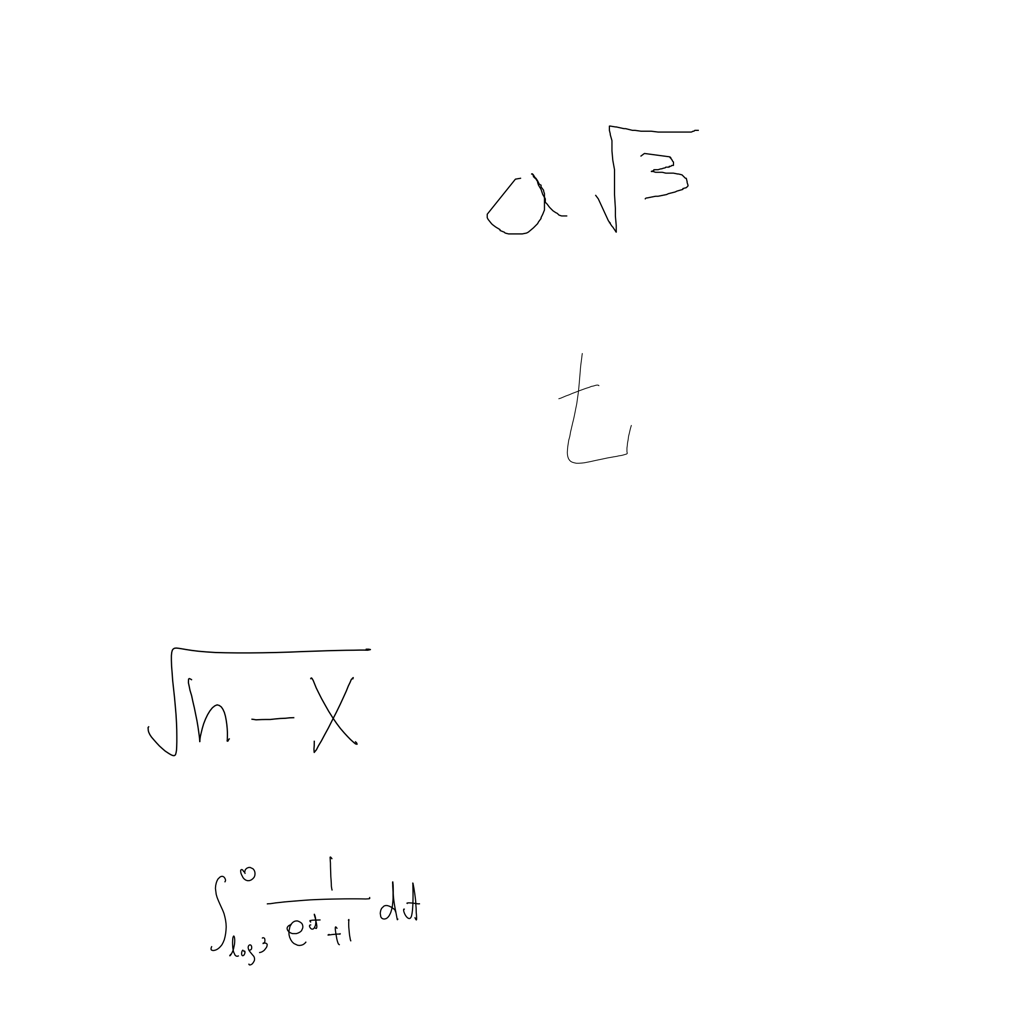 a√3
t
√(n-X)
∫_{log3}^{0} 1/(e^t+1) dt